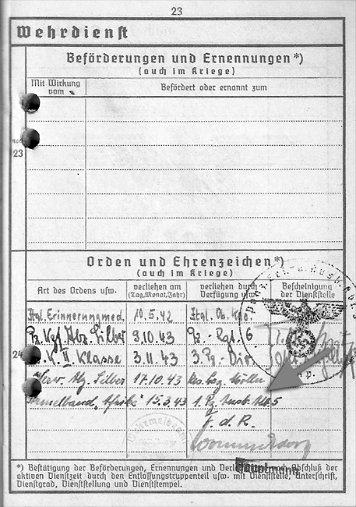 23
Wehrdienst
Beförderungen und Ernennungen*)
(auch im Kriege)
Mit Wirkung vom
Befördert oder ernannt zum
23
Orden und Ehrenzeichen*)
(auch im Kriege)
Art des Ordens usw.
verliehen am (Tag, Monat, Jahr)
verliehen durch Verfügung usw.
Bescheinigung der Dienststelle
Ital. Erinnerungsmed. 10.5.42 Ital. Ob. Kdo.
Pz. Kpf. Abz. Silber 3.10.43 Pz.-Rgt. 6
24 E.K. II. Klasse 3.11.43 3. Pz.-Div.
Verw. Abz. Silber 17.10.43
Ärmelband "Afrika" 15.3.43
J. d. R.
Hauptmann
*) Bestätigung der Beförderungen, Ernennungen und Abschluß der
aktiven Dienstzeit durch den Entlassungstruppenteil usw. mit Dienststelle, Unterschrift,
Dienstgrad, Dienststellung und Dienststempel.